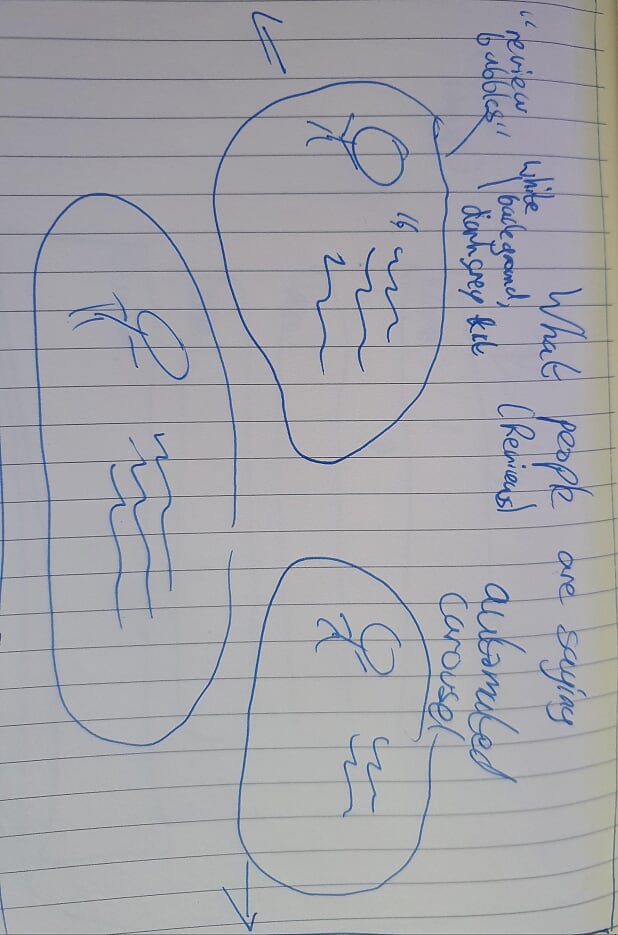 What people are saying
(Reviews)
"review
bubbles"
white
background,
dark grey text
automated
carousel